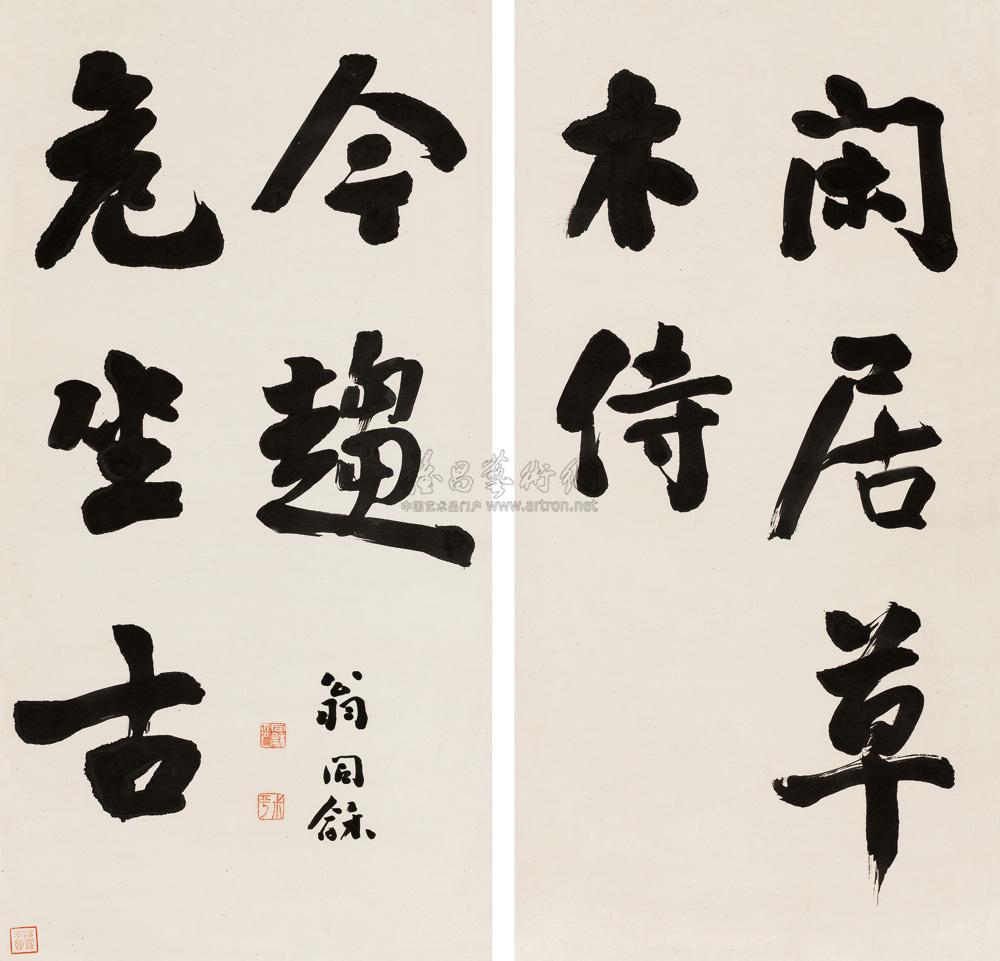 閑居草
木侍
危坐古
今趨
翁同龢
雅昌藝術網
中国艺术品门户 www.artron.net